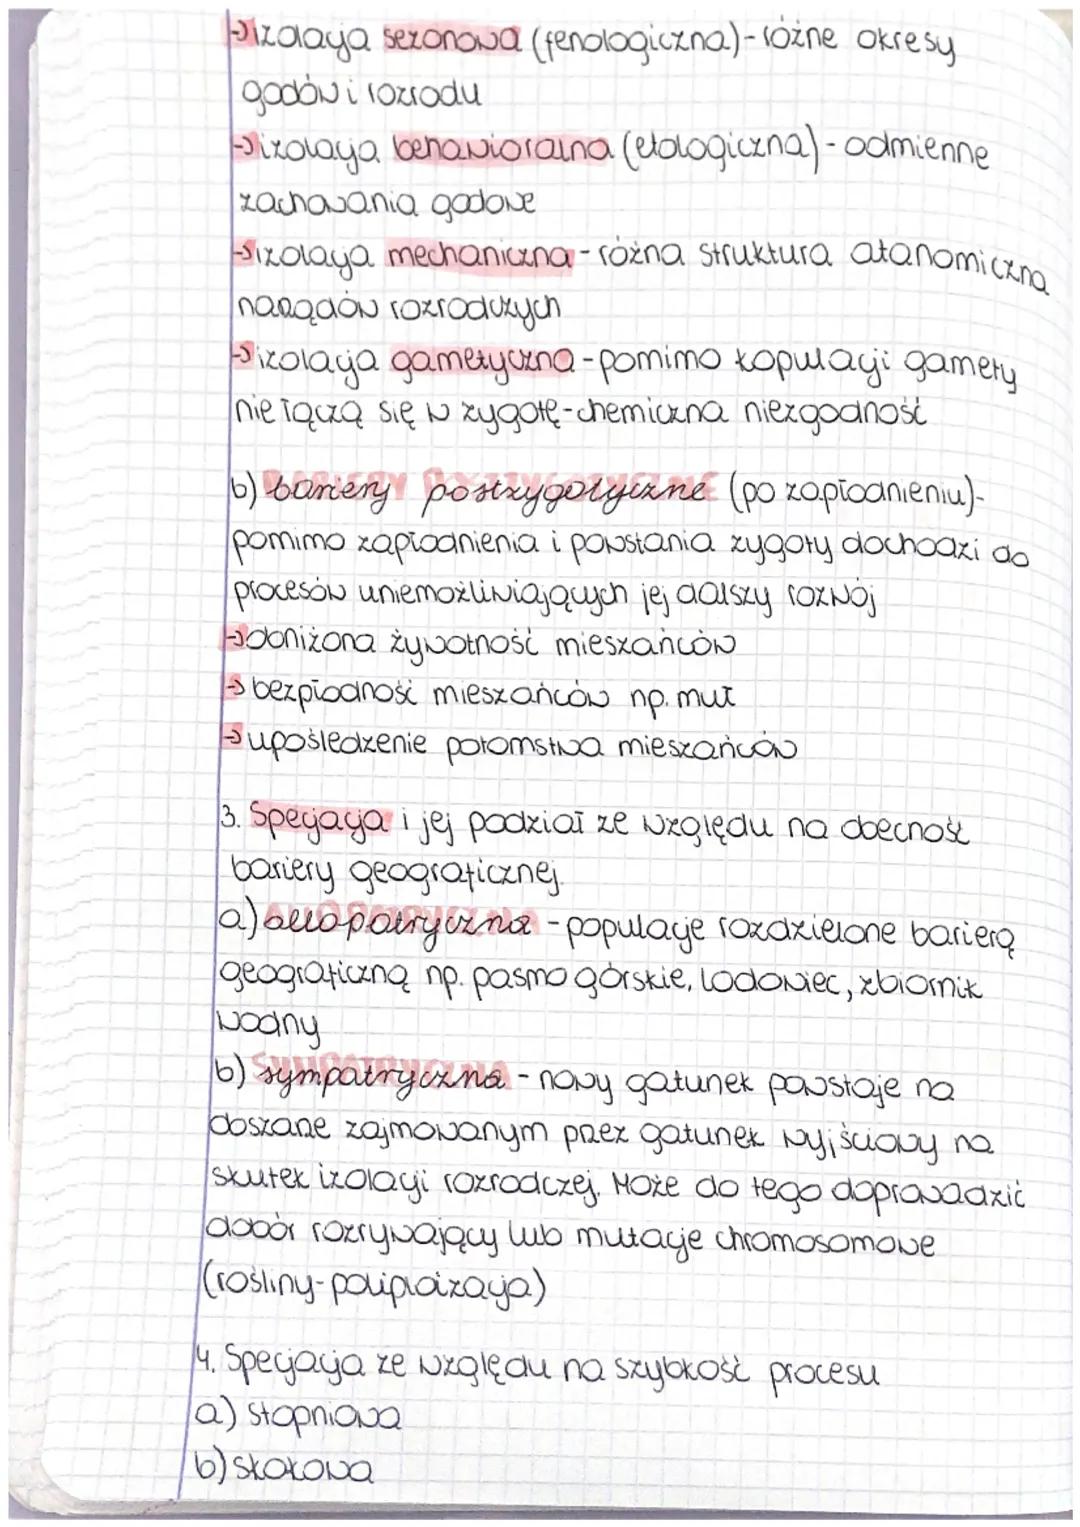 →izolacja sezonowa (fenologiczna)-różne okresy
godów i rozrodu
→izolacja behawioralna (etologiczna)-odmienne
zachowania godowe
→izolacja mechaniczna-różna struktura atanomiczna
narządów rozrodczych
→izolacja gametyczna-pomimo kopulacji gamety
nie łączą się w zygotę-chemiczna niezgodność
b) bariery postzygotyczne (po zapłodnieniu)-
pomimo zapłodnienia i powstania zygoty dochodzi do
procesów uniemożliwiających jej dalszy rozwój
→obniżona żywotność mieszańców
→bezpłodność mieszańców np. muł
→upośledzenie potomstwa mieszańców
3. Specjacja i jej podział ze względu na obecność
bariery geograficznej.
a) allopatryczna -populacje rozdzielone barierą
geograficzną np. pasmo górskie, lodowiec, zbiornik
wodny
b) sympatryczna - nowy gatunek powstaje na
obszarze zajmowanym przez gatunek wyjściowy na
skutek izolacji rozrodczej. Może do tego doprowadzić
dobór rozrywający lub mutacje chromosomowe
(rośliny-poliploizacja)
4. Specjacja ze względu na szybkość procesu
a) stopniowa
b) skokowa